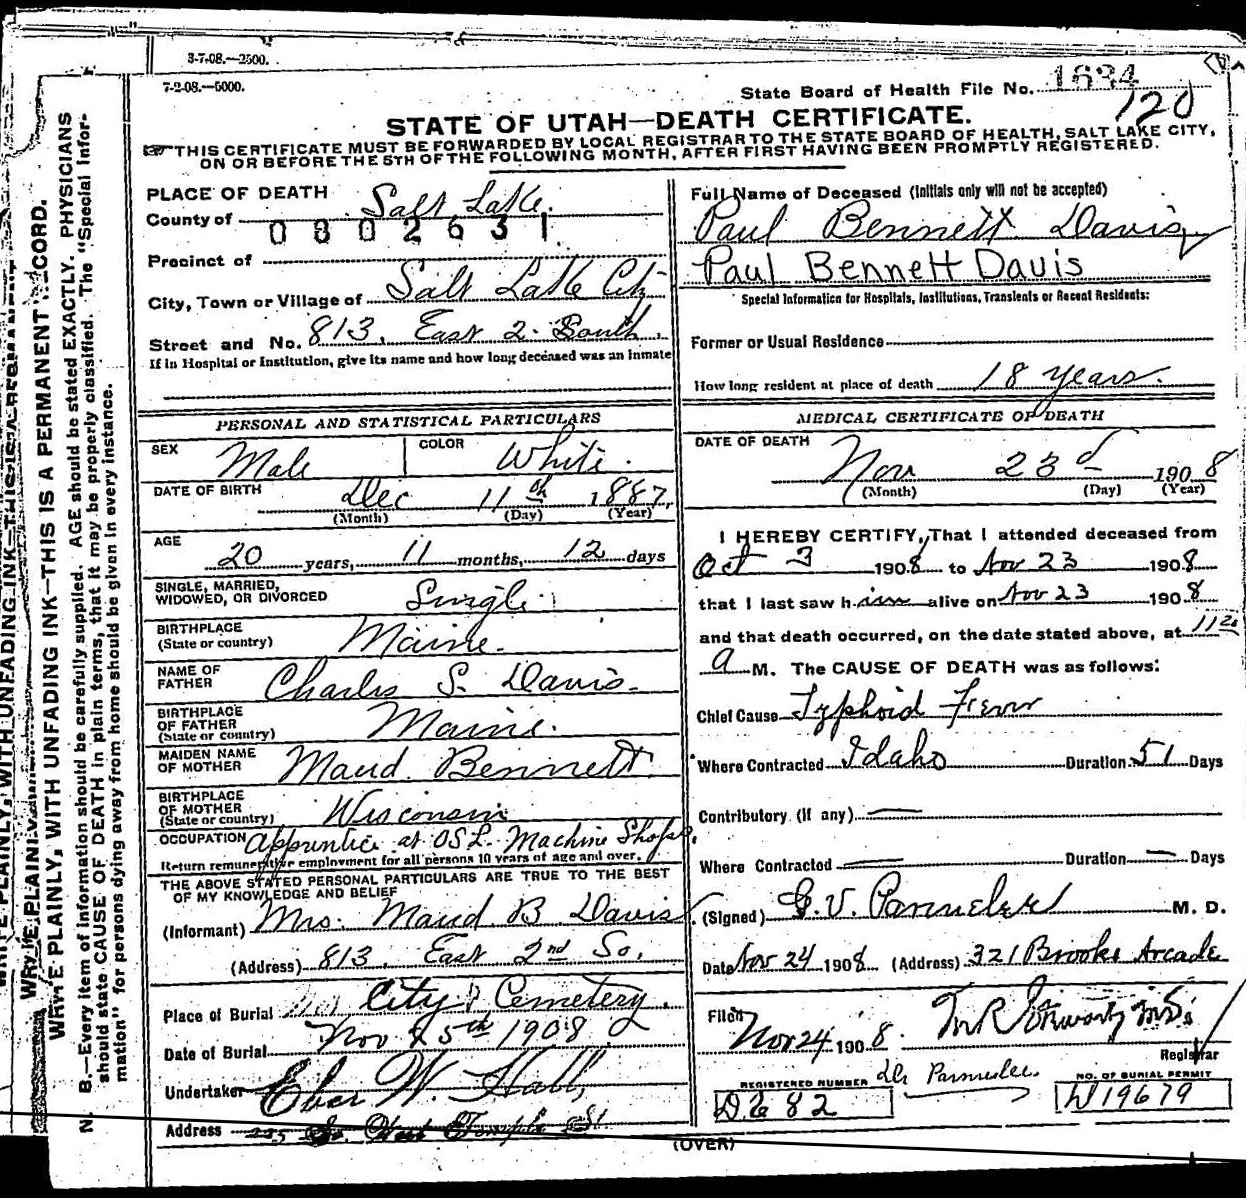 3-7-08.—2500.
7-2-08.—5000.
State Board of Health File No. 1634
120
STATE OF UTAH—DEATH CERTIFICATE.
THIS CERTIFICATE MUST BE FORWARDED BY LOCAL REGISTRAR TO THE STATE BOARD OF HEALTH, SALT LAKE CITY,
ON OR BEFORE THE 5TH OF THE FOLLOWING MONTH, AFTER FIRST HAVING BEEN PROMPTLY REGISTERED.
WRITE PLAINLY, WITH UNFADING INK—THIS IS A PERMANENT RECORD.
N. B.—Every item of information should be carefully supplied. AGE should be stated EXACTLY. PHYSICIANS
should state CAUSE OF DEATH in plain terms, that it may be properly classified. The "Special Infor-
mation" for persons dying away from home should be given in every instance.
PLACE OF DEATH
County of Salt Lake.
0802631
Precinct of
City, Town or Village of Salt Lake City
Street and No. 813. East 2. South.
If in Hospital or Institution, give its name and how long deceased was an inmate
PERSONAL AND STATISTICAL PARTICULARS
SEX Male COLOR White.
DATE OF BIRTH Dec 11th 1887.
(Month) (Day) (Year)
AGE
20 years, 11 months, 12 days
SINGLE, MARRIED,
WIDOWED, OR DIVORCED Single
BIRTHPLACE
(State or country) Maine.
NAME OF
FATHER Charles S. Davis.
BIRTHPLACE
OF FATHER
(State or country) Maine.
MAIDEN NAME
OF MOTHER Maud. Bennett.
BIRTHPLACE
OF MOTHER
(State or country) Wisconsin
OCCUPATION Apprentice at OSL. Machine Shops.
Return remunerative employment for all persons 10 years of age and over.
THE ABOVE STATED PERSONAL PARTICULARS ARE TRUE TO THE BEST
OF MY KNOWLEDGE AND BELIEF
(Informant) Mrs. Maud B Davis
(Address) 813. East 2nd So.
Place of Burial City Cemetery.
Date of Burial Nov 25th 1908
Undertaker Eber W. Hall,
Address So. West Temple St.
Full Name of Deceased (Initials only will not be accepted)
Paul Bennett Davis
Paul Bennett Davis
Special Information for Hospitals, Institutions, Transients or Recent Residents:
Former or Usual Residence
How long resident at place of death 18 years.
MEDICAL CERTIFICATE OF DEATH
DATE OF DEATH
Nov 23d 1908
(Month) (Day) (Year)
I HEREBY CERTIFY, That I attended deceased from
Oct 3 1908 to Nov 23 1908
that I last saw him alive on Nov 23 1908
and that death occurred, on the date stated above, at 11
a M. The CAUSE OF DEATH was as follows:
Chief Cause Typhoid Fever
Where Contracted Idaho Duration 51 Days
Contributory (if any) —
Where Contracted — Duration — Days
(Signed) G. V. Parmelee M. D.
Date Nov 24 1908 (Address) 321 Brooks Arcade
Filed Nov 24 1908.
Registrar
REGISTERED NUMBER Dr Parmelee NO. OF BURIAL PERMIT
D2682 W19679
(OVER)